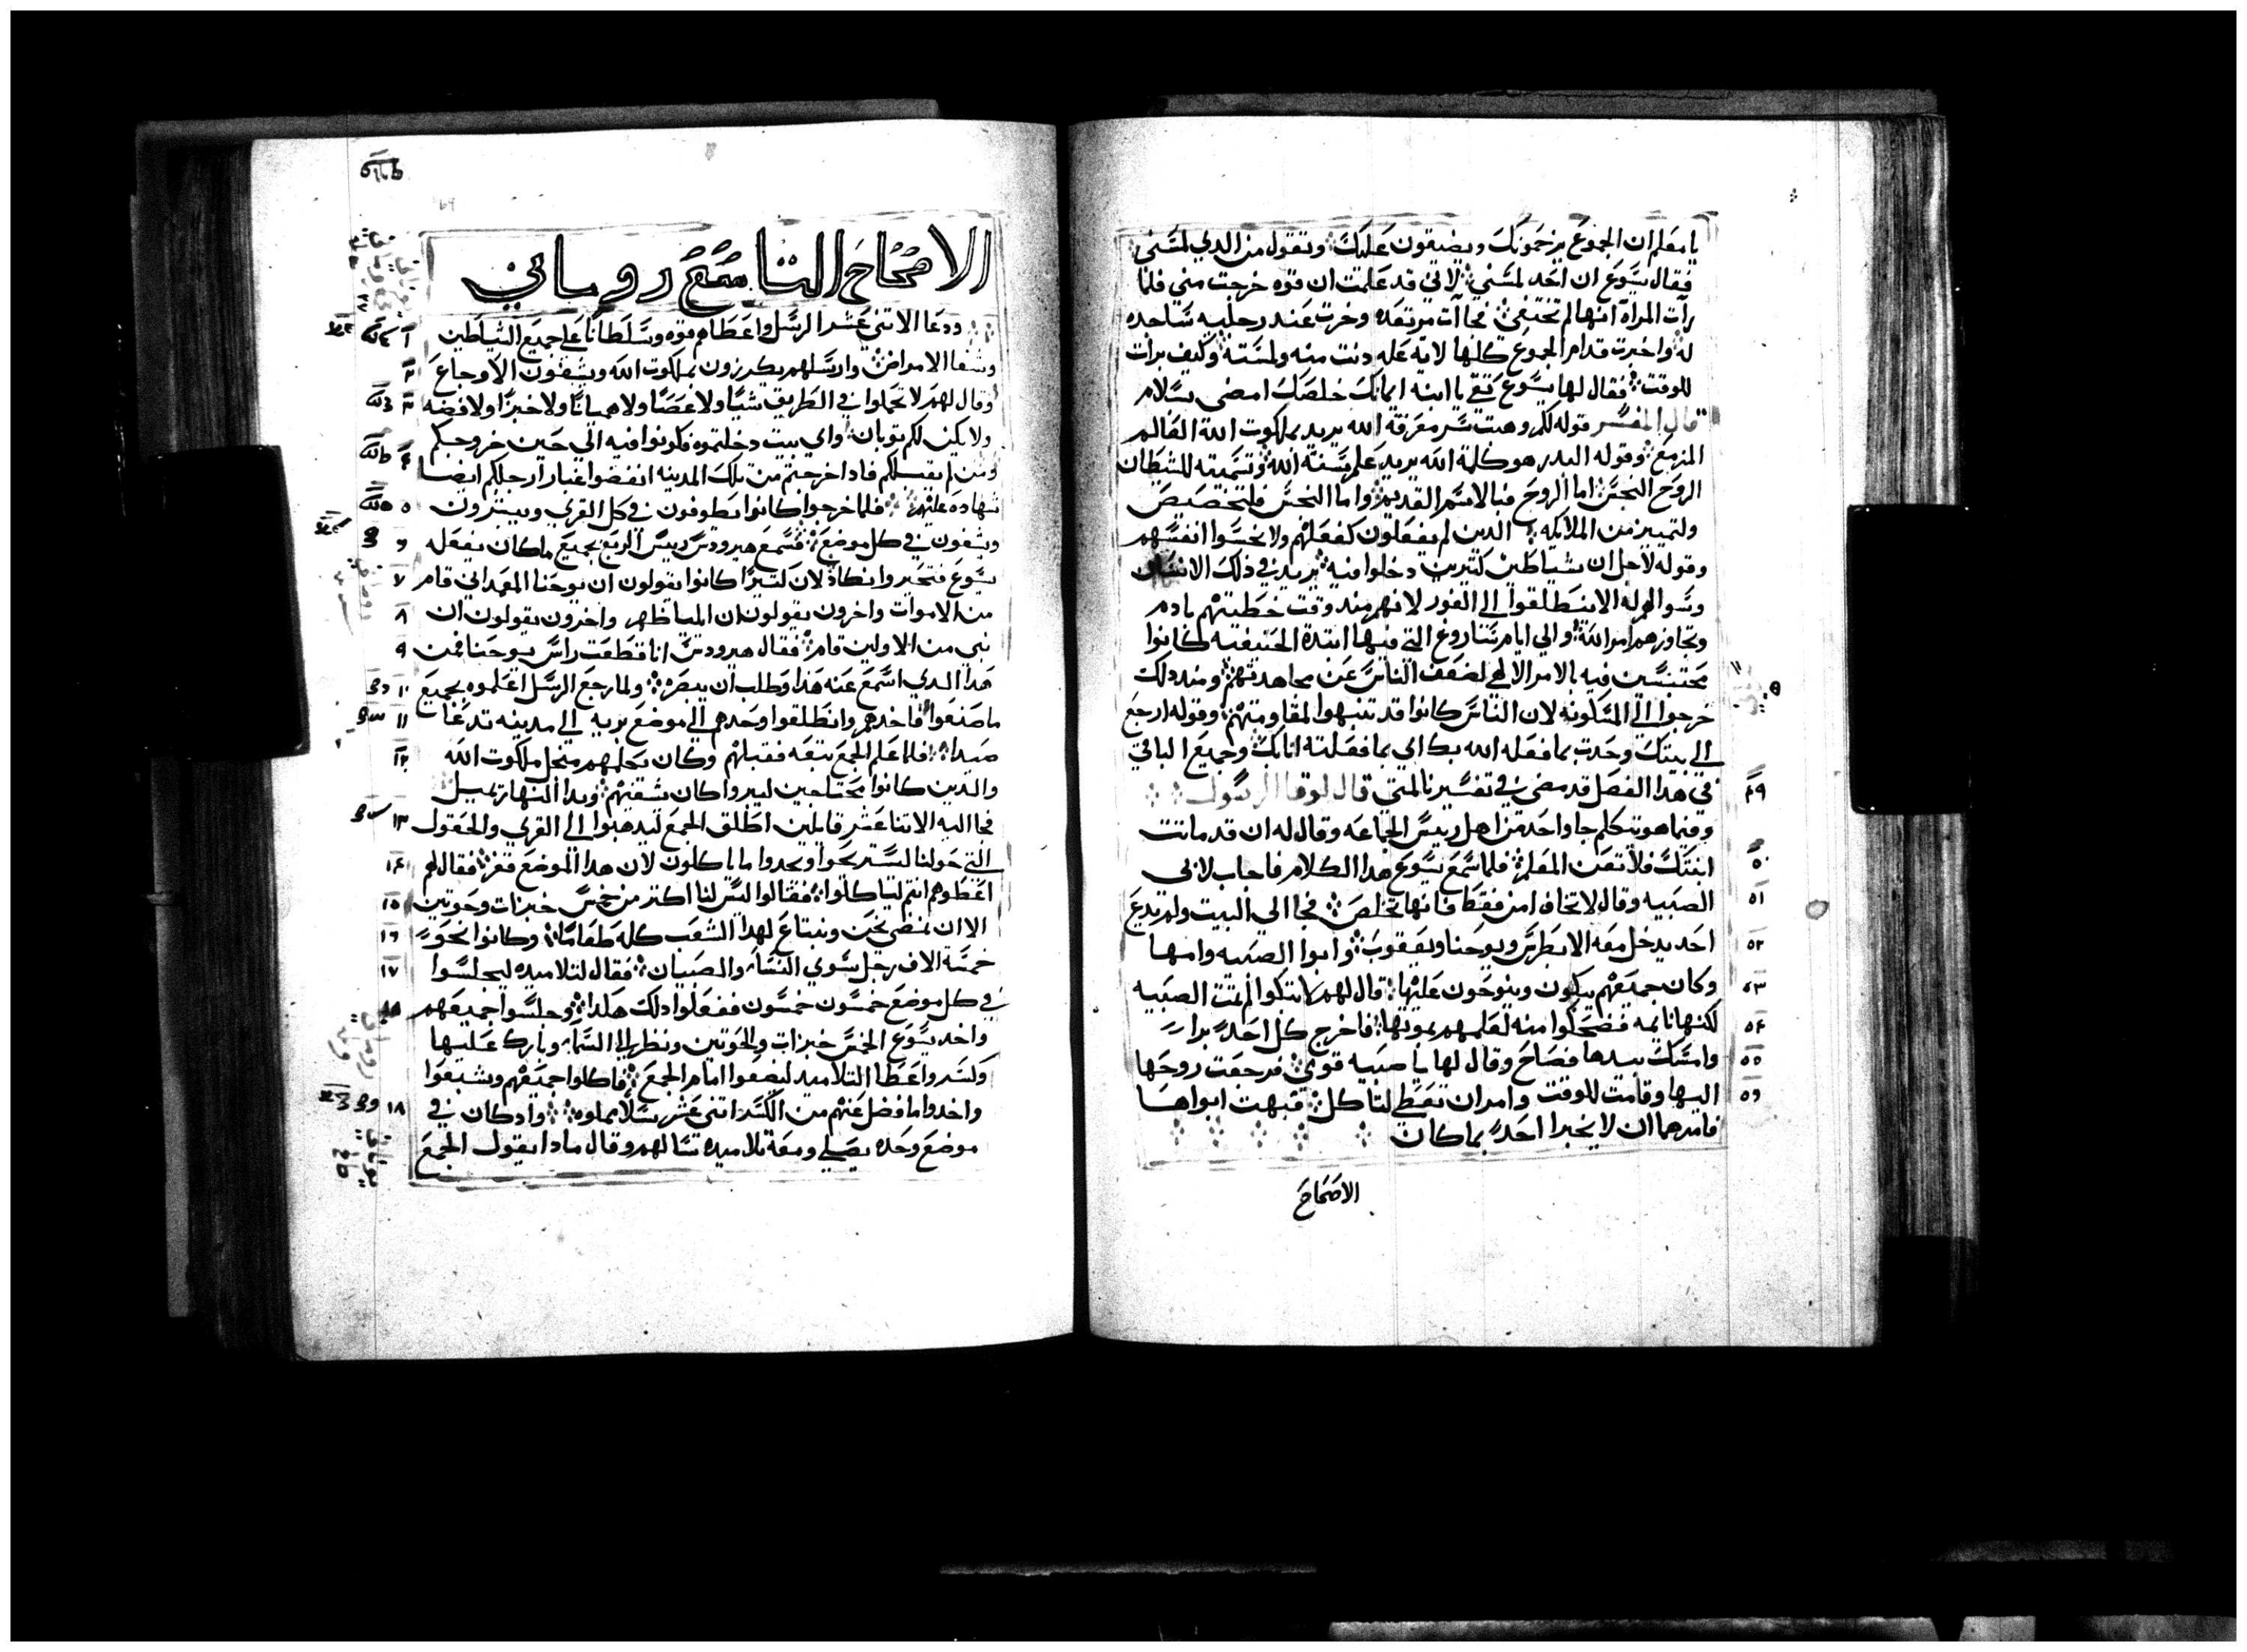 يا معلم ان الجموع يزحمونك ويضيقون عليك وتقول من الدي لمسني
فقال يسوع ان احد لمسني لاني قد علمت ان قوه خرجت مني فلما
رآت المراة انها لم تختفي فجاآت مرتعده وخرت عند رجليه ساجده
له واخبرت قدام الجموع كلها لاية عله دنت منه ولمسته وكيف برات
للوقت فقال لها يسوع تقي يا ابنه ايمانك خلصك امضي بسلام
قال المفسر قوله لكم وهبت سر معرفة الله يريد ملكوت الله العالم
المزمع وقوله البدر هو كلمة الله يريد علم سنة الله وتسميته للشيطان
الروح النجس اما الروح فبالاسم القديم واما النجس فلتخصيص
ولتمييز من الملايكه الدين لم يفعلون كفعلهم ولا نجسوا انفسهم
وقوله لاجل ان شياطين كتيرين دخلوا فيه يريد في دلك الانسان
وسوالهم له الا ينطلقوا الي الغور لانهم مند وقت خطيتهم بادم
وتجاوزهم امر الله والي ايام تناروغ التي فيها ابتدة الحنيفيه كانوا
محتبسين فيه بالامر الالهي لضعف الناس عن مجاهدتهم ومند دلك
خرجوا الي المسكونه لان الناس كانوا قد تنبهوا لمقاومتهم وقوله ارجع
الي بيتك وحدت بما فعله الله بك اي بما فعلته انا بك وجميع الباقي
في هدا الفصل قد مضي في تفسيرنا لمتي قال لوقا الرسول
٤٩ وفيما هو يتكلم جا واحد من اهل رييس الجماعه وقال له ان قد ماتت
٥٠ ابنتك فلا تعن المعلم فلما سمع يسوع هدا الكلام فاجاب لابي
٥١ الصبيه وقال لا تخاف امن فقط فانها تخلص فجا الي البيت ولم يدع
٥٢ احد يدخل معه الا بطرس ويوحنا ويعقوب وابوا الصبيه وامها
٥٣ وكان جميعهم يبكون وينوحون عليها قال لهم لا تبكوا لم تمت الصبيه
٥٤ لكنها نايمه فضحكوا منه لعلمهم بموتها فاخرج كل احد برا
٥٥ وامسك بيدها فصاح وقال لها يا صبيه قومي فرجعت روحها
٥٦ اليها وقامت للوقت وامر ان تعطي لتاكل فبهت ابواها
فامرهما ان لا يخبرا احد بما كان
الاصحاح
الاصحاح التاسع روماني
١ ودعا الاتني عشر الرسل واعطاهم قوه وسلطانا علي جميع الشياطين
٢ وشفا الامراض وارسلهم يكرزون بملكوت الله ويشفون الاوجاع
٣ وقال لهم لا تحملوا في الطريق شيا ولا عصا ولا هميانا ولا خبزا ولا فضه
ولا يكن لكم توبان واي بيت دخلتموه فكونوا فيه الي حين خروجكم
٤ ومن لم يقبلكم فادا خرجتم من تلك المدينه انفضوا غبار ارجلكم ايضا
٥ شهاده عليهم فلما خرجوا كانوا يطوفون في كل القري ويبشرون
٦ ويشفون في كل موضع فسمع هيرودس رييس الربع بجميع ما كان يفعله
٧ يسوع فتحير وانكاد لان كتيرا كانوا يقولون ان يوحنا المعمداني قام
٨ من الاموات واخرون يقولون ان الميسا ظهر واخرون يقولون ان
٩ نبي من الاولين قام فقال هيرودس انا قطعت راس يوحنا فمن
١٠ هدا الدي اسمع عنه هدا وطلب ان يبصره ولما رجع الرسل اعلموه بجميع
١١ ما صنعوا فاخدهم وانطلقوا وحدهم الي موضع بريه الي مدينه تدعا
١٢ صيدا فلما علم الجمع تبعه فقبلهم وكان يكلمهم من اجل ملكوت الله
والدين كانوا محتاجين ليبروا كان يشفيهم وبدا النهار يميل
١٣ فجا اليه الاتنا عشر قايلين اطلق الجمع ليدهبوا الي القري والحقول
١٤ التي حولنا ليستريحوا ويجدوا ما ياكلون لان هدا الموضع قفر فقال لهم
١٥ اعطوهم انتم ليتاكلوا فقالوا ليس لنا اكتر من خمس خبزات وحوتين
١٦ الا ان نمضي نحن ونبتاع لهدا الشعب كله طعاما وكانوا نحو
١٧ خمسة الاف رجل سوي النسا والصبيان فقال لتلاميده ليجلسوا
في كل موضع خمسون خمسون ففعلوا دلك هكدا وجلسوا جميعهم
واخد يسوع الخمس خبزات والحوتين ونظر الي السما وبارك عليها
وكسر واعطا التلاميد ليضعوا امام الجمع فاكلوا جميعهم وشبعوا
١٨ واخدوا ما فضل عنهم من الكسر اتني عشر سلا مملوه واد كان في
موضع وحده يصلي ومعه تلاميده سالهم وقال مادا يقول الجمع